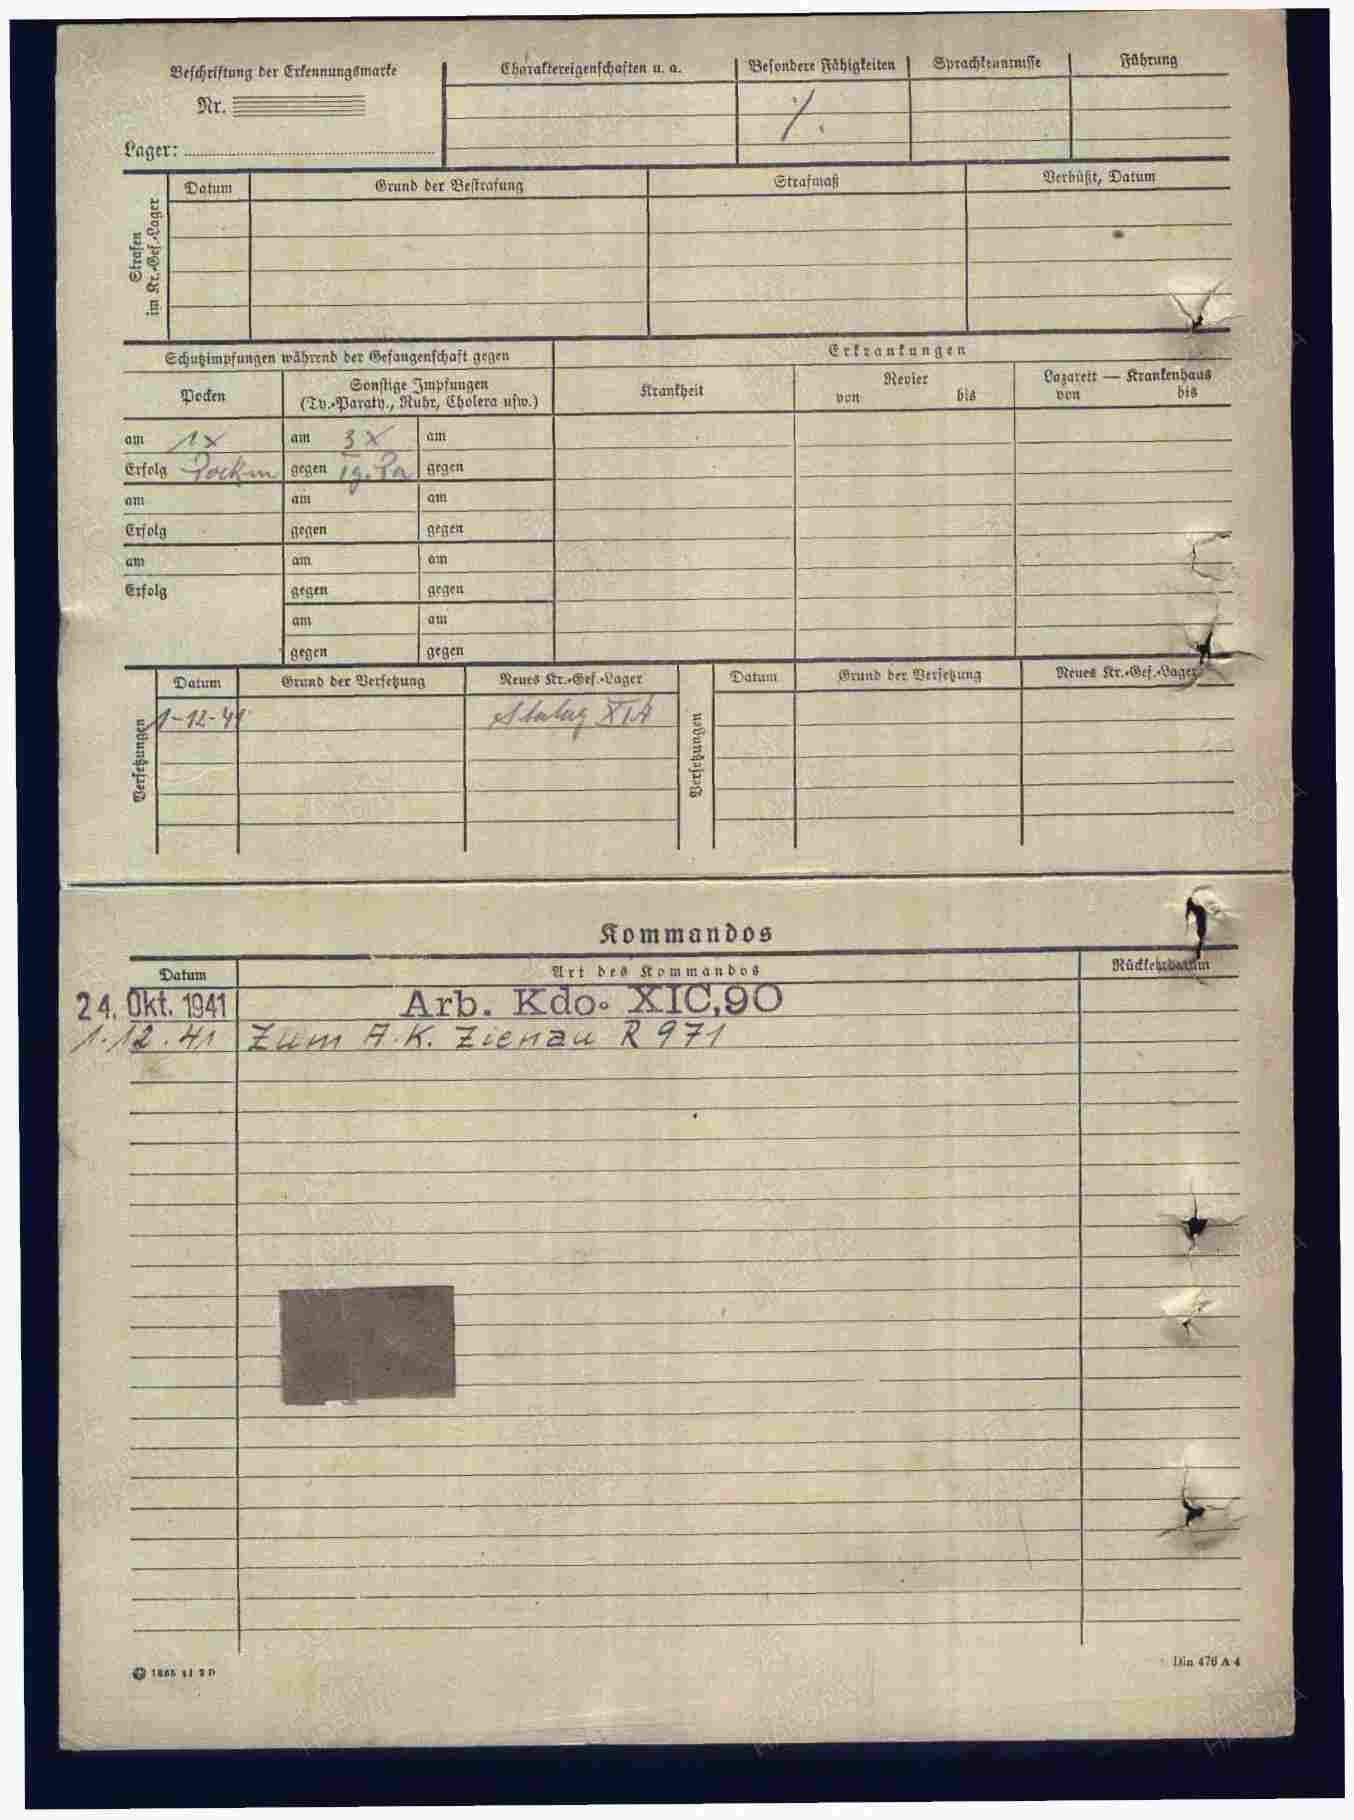 Beschriftung der Erkennungsmarke
Nr.
Lager:
Charaktereigenschaften u. a.
Besondere Fähigkeiten
Sprachkenntnisse
Führung
%.
Strafen
im Kr.-Gef.-Lager
Datum
Grund der Bestrafung
Strafmaß
Verbüßt, Datum
Schutzimpfungen während der Gefangenschaft gegen
Erkrankungen
Pocken
Sonstige Impfungen
(Ty.-Paraty., Ruhr, Cholera usw.)
Krankheit
Revier
von bis
Lazarett — Krankenhaus
von bis
am 1x am 3x am
Erfolg Pocken gegen gegen
am am am
Erfolg gegen gegen
am am am
Erfolg gegen gegen
am am
gegen gegen
Versetzungen
Datum Grund der Versetzung Neues Kr.-Gef.-Lager
1-12-41 Stalag XIA
Versetzungen
Datum Grund der Versetzung Neues Kr.-Gef.-Lager
Kommandos
Datum Art des Kommandos Rückkehrdatum
24. Okt. 1941 Arb. Kdo. XIC,90
1.12.41 Zum A.K. Zienau R 971
Din 476 A 4
ПАМЯТЬ
НАРОДА